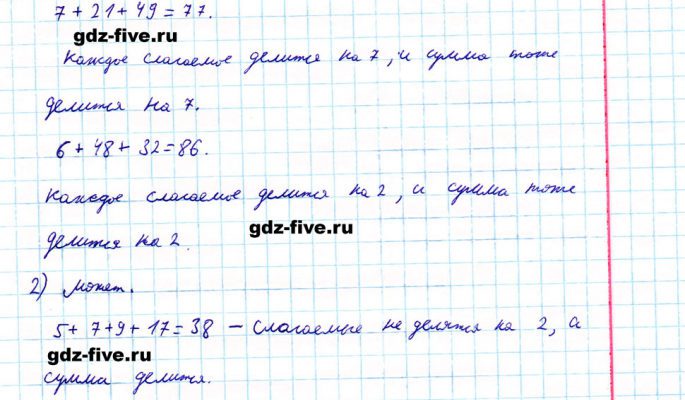 7 + 21 + 49 = 77.
gdz-five.ru
Каждое слагаемое делится на 7, и сумма тоже
делится на 7.
6 + 48 + 32 = 86.
Каждое слагаемое делится на 2, и сумма тоже
gdz-five.ru
делится на 2.
2) Может.
5 + 7 + 9 + 17 = 38 — слагаемые не делятся на 2, а
gdz-five.ru
сумма делится.